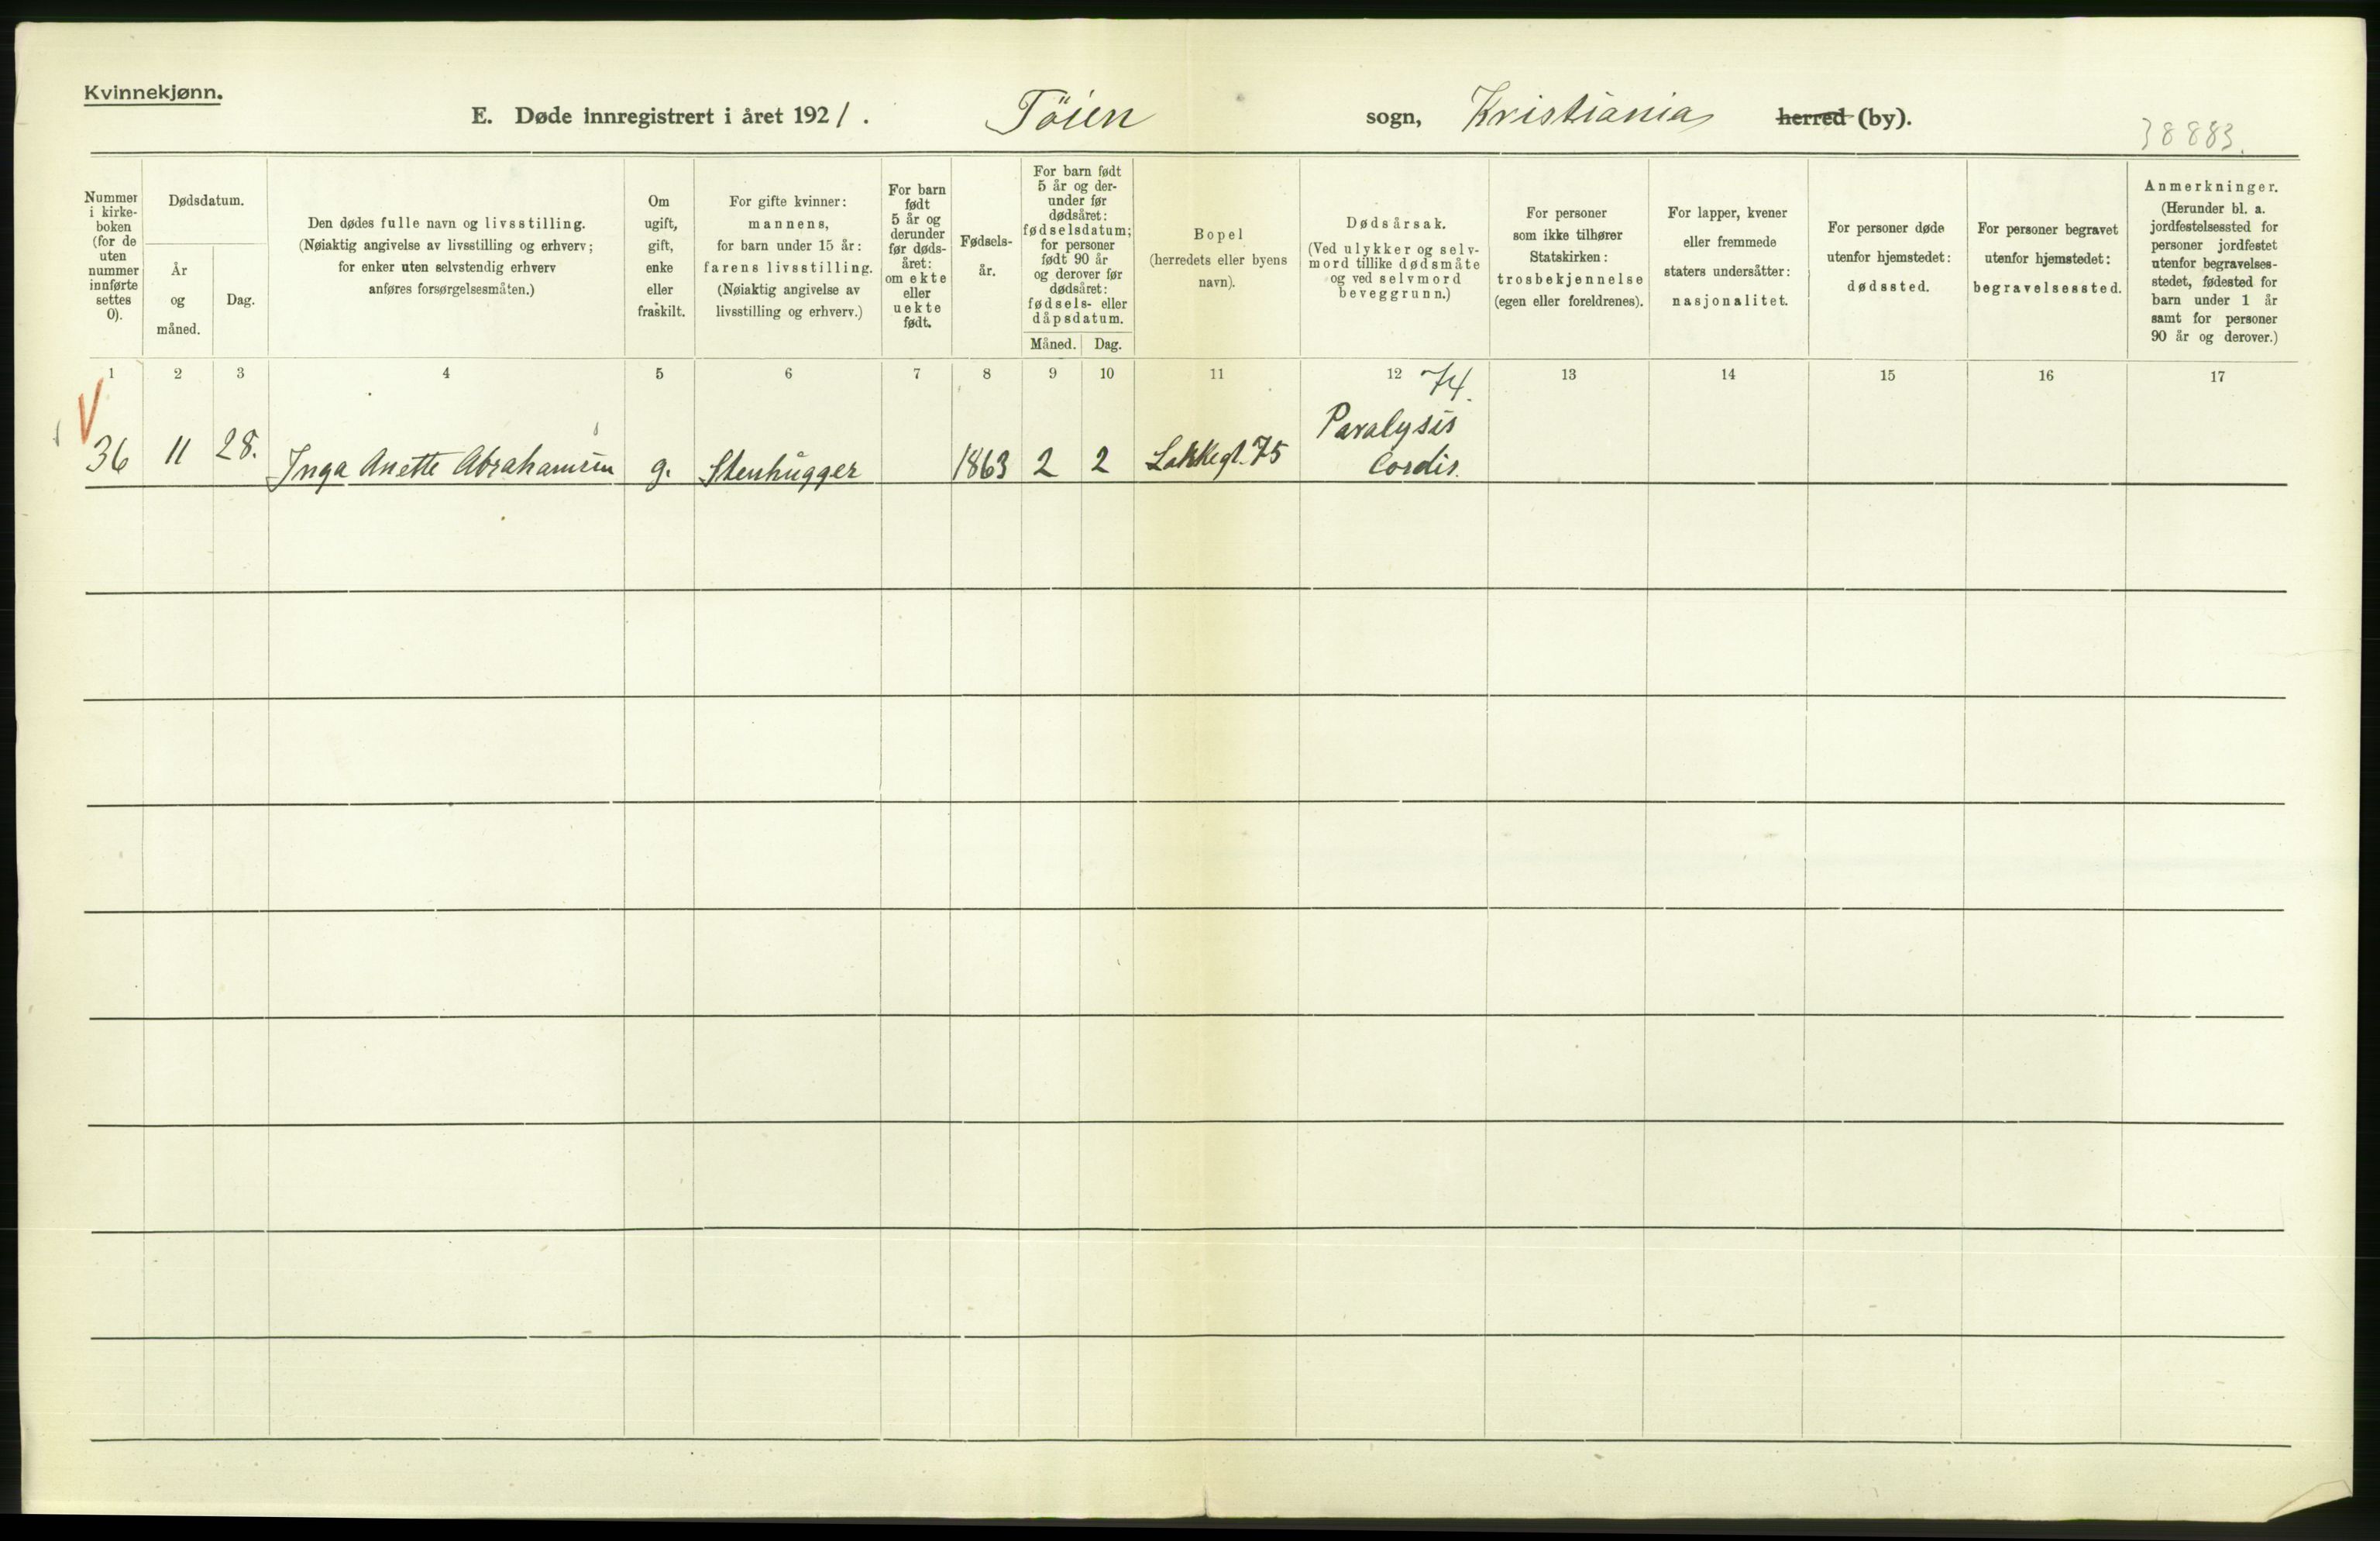 Kvinnekjønn.
E. Døde innregistrert i året 1921. Töien sogn, Kristiania herred (by).
38883.
Nummer
i kirke-
boken
(for de
uten
nummer
innførte
settes
0).
Dødsdatum.
År
og
måned.
Dag.
Den dødes fulle navn og livsstilling.
(Nøiaktig angivelse av livsstilling og erhverv;
for enker uten selvstendig erhverv
anføres forsørgelsesmåten.)
Om
ugift,
gift,
enke
eller
fraskilt.
For gifte kvinner:
mannens,
for barn under 15 år:
farens livsstilling.
(Nøiaktig angivelse av
livsstilling og erhverv.)
For barn
født
5 år og
derunder
før døds-
året:
om ekte
eller
uekte
født.
Fødsels-
år.
For barn født
5 år og der-
under før
dødsåret:
fødselsdatum;
for personer
født 90 år
og derover før
dødsåret:
fødsels- eller
dåpsdatum.
Måned. Dag.
Bopel
(herredets eller byens
navn).
Dødsårsak.
(Ved ulykker og selv-
mord tillike dødsmåte
og ved selvmord
beveggrunn.)
For personer
som ikke tilhører
Statskirken:
trosbekjennelse
(egen eller foreldrenes).
For lapper, kvener
eller fremmede
staters undersåtter:
nasjonalitet.
For personer døde
utenfor hjemstedet:
dødssted.
For personer begravet
utenfor hjemstedet:
begravelsessted.
Anmerkninger.
(Herunder bl. a.
jordfestelsessted for
personer jordfestet
utenfor begravelses-
stedet, fødested for
barn under 1 år
samt for personer
90 år og derover.)
1 2 3 4 5 6 7 8 9 10 11 12 13 14 15 16 17
74.
36 11 28. Inga Anette Abrahamsen g. Stenhugger 1863 2 2 Lakkegt. 75 Paralysis
Cordis.